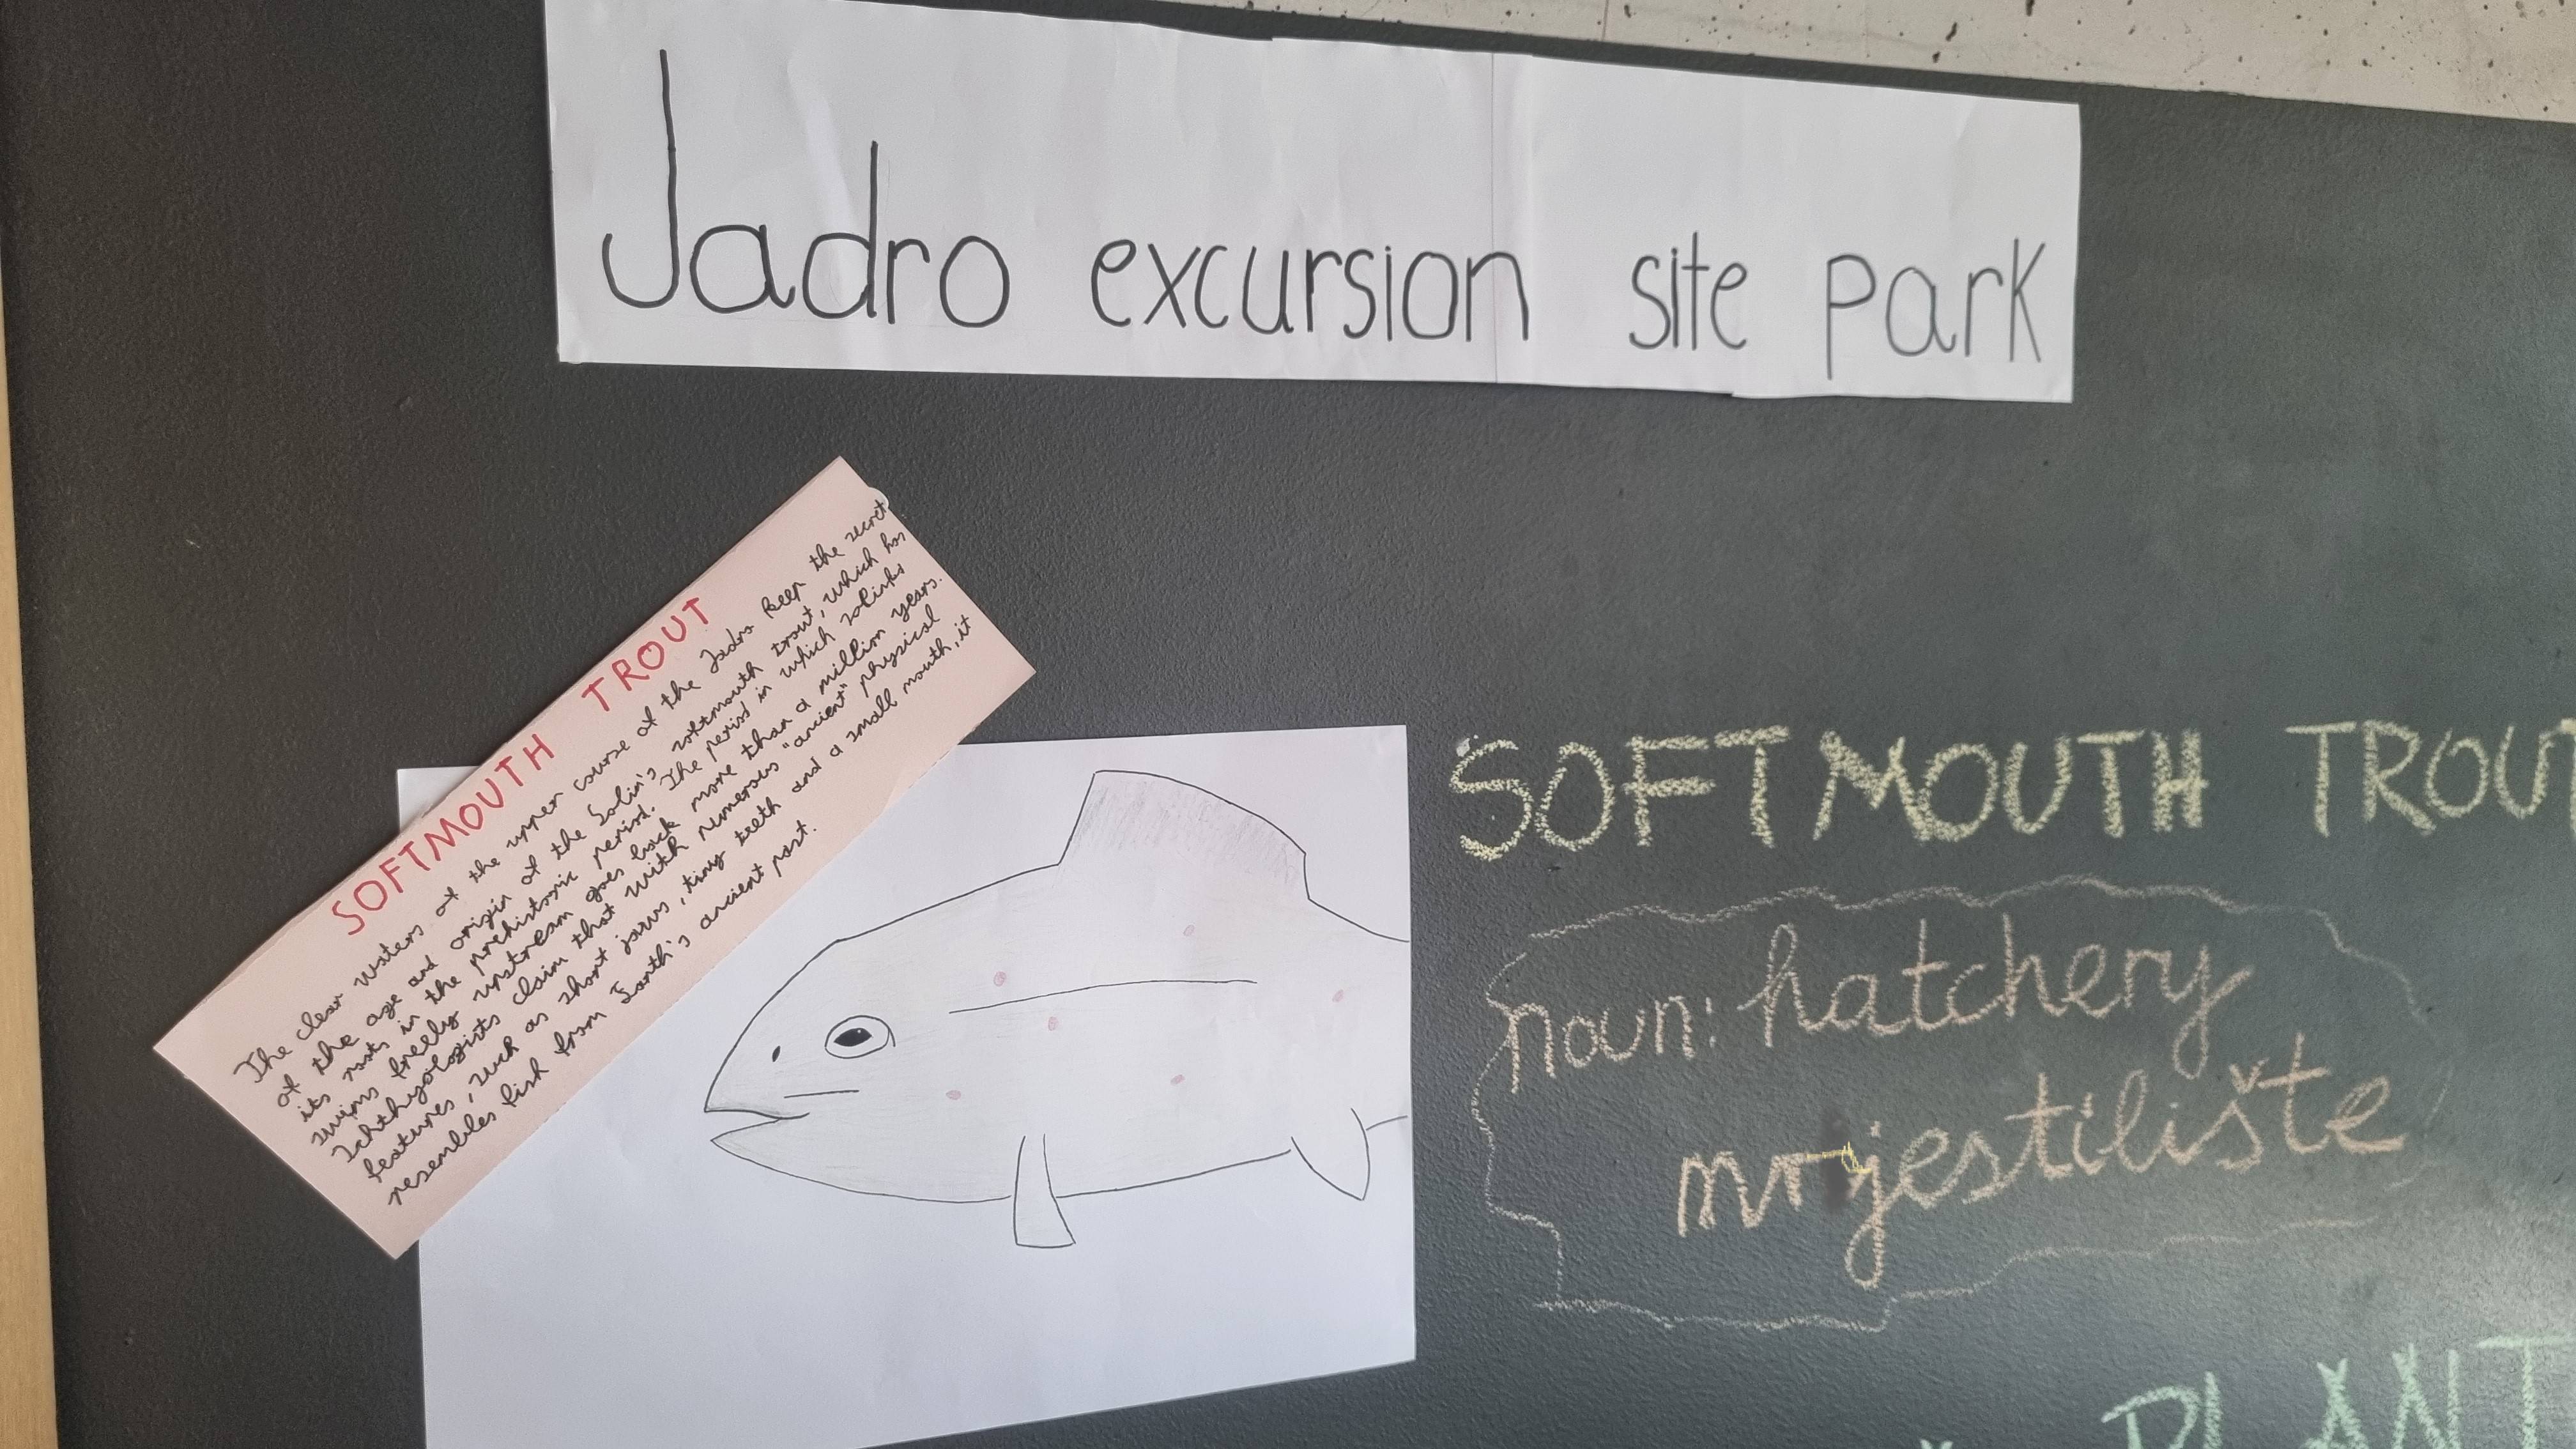 Jadro excursion site park
SOFTMOUTH TROUT
The clear waters of the upper course of the Jadro keep the secret
of the age and origin of the Solin's softmouth trout, which has
its roots in the prehistoric period. The period in which Solinks
swims freely upstream goes back more than a million years.
Ichthyologists claim that with numerous "ancient" physical
features, such as short jaws, tiny teeth and a small mouth, it
resembles fish from Earth's ancient past.
SOFTMOUTH TROUT
noun: hatchery
mrjestilište
PLANT